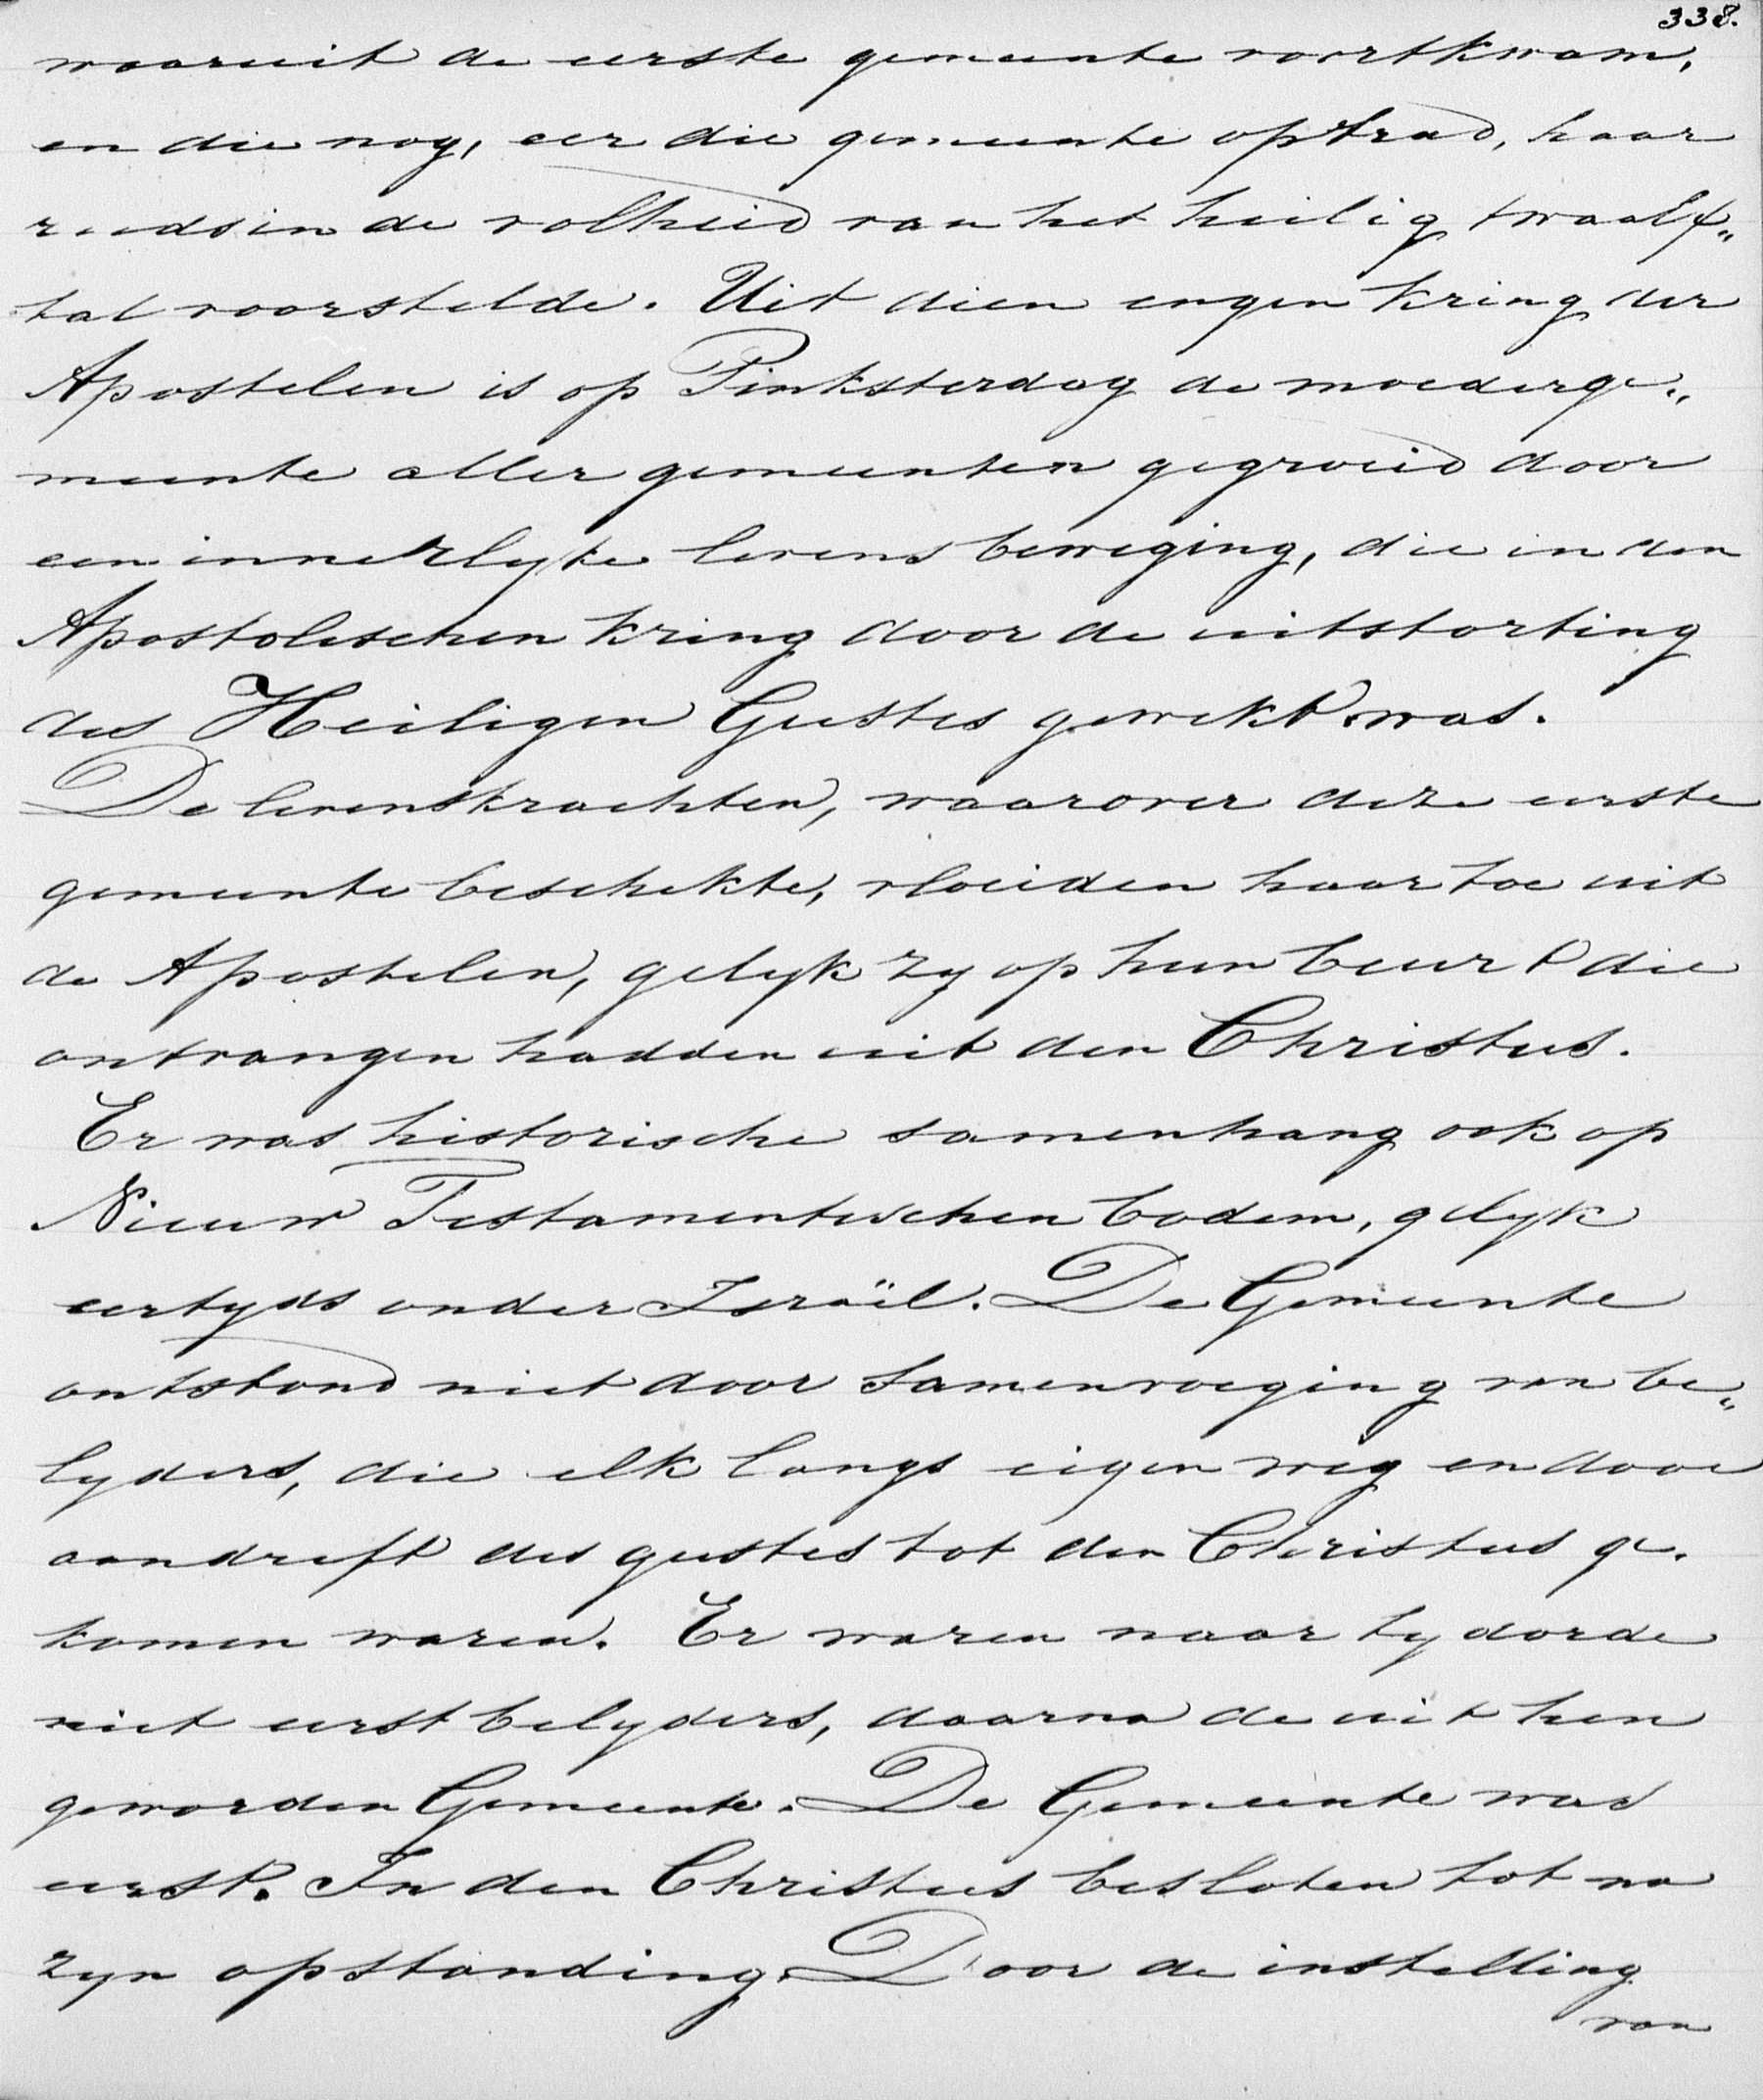 338.
waaruit de eerste gemeente voortkwam,
en die nog, eer die gemeente optrad, haar
reeds in de volheid van het heilig twaalf„
tal voorstelde. Uit dien engen kring der
Apostelen is op Pinksterdag de moederge„
meente aller gemeenten gegroeid door
een innerlyke levensbeweging, die in den
Apostolischen kring door de uitstorting
des Heiligen Geestes gewekt was.
De levenskrachten, waarover deze eerste
gemeente beschikte, vloeiden haar toe uit
de Apostelen, gelyk zy op hun beurt die
ontvangen hadden uit den Christus.
Er was historische samenhang ook op
Nieuw Testamentischen bodem, gelyk
eertyds onder Israël. De Gemeente
ontstond niet door samenvoeging van be„
lyders, die elk langs eigen weg en door
aandrift des geestes tot den Christus ge.
komen waren. Er waren naar tydorde
niet eerst belyders, daarna de uit hen
geworden Gemeente. De Gemeente was
eerst. In den Christus besloten tot na
zyn opstanding. Door de instelling
van